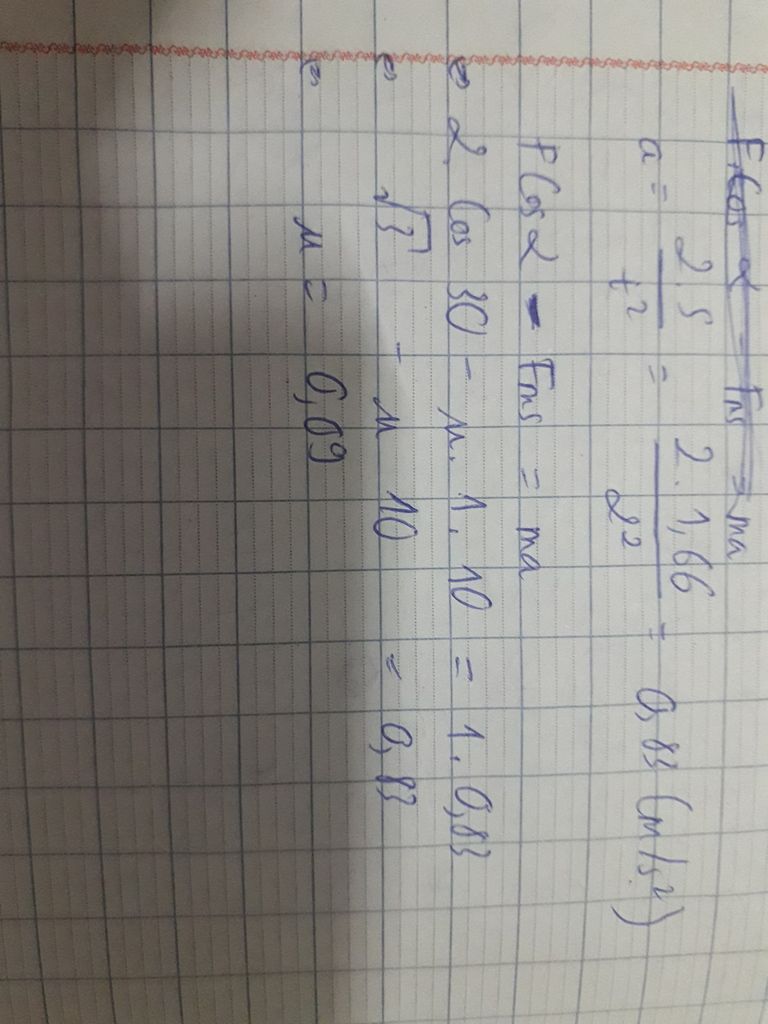 F.Cos α - Fms = ma
a = 2.S / t² = 2.1,66 / 2² = 0,83 (m/s²)
F Cos α - Fms = ma
⇔ 2 Cos 30 - μ.1.10 = 1.0,83
⇔ √3 - μ 10 = 0,83
⇔ μ = 0,09